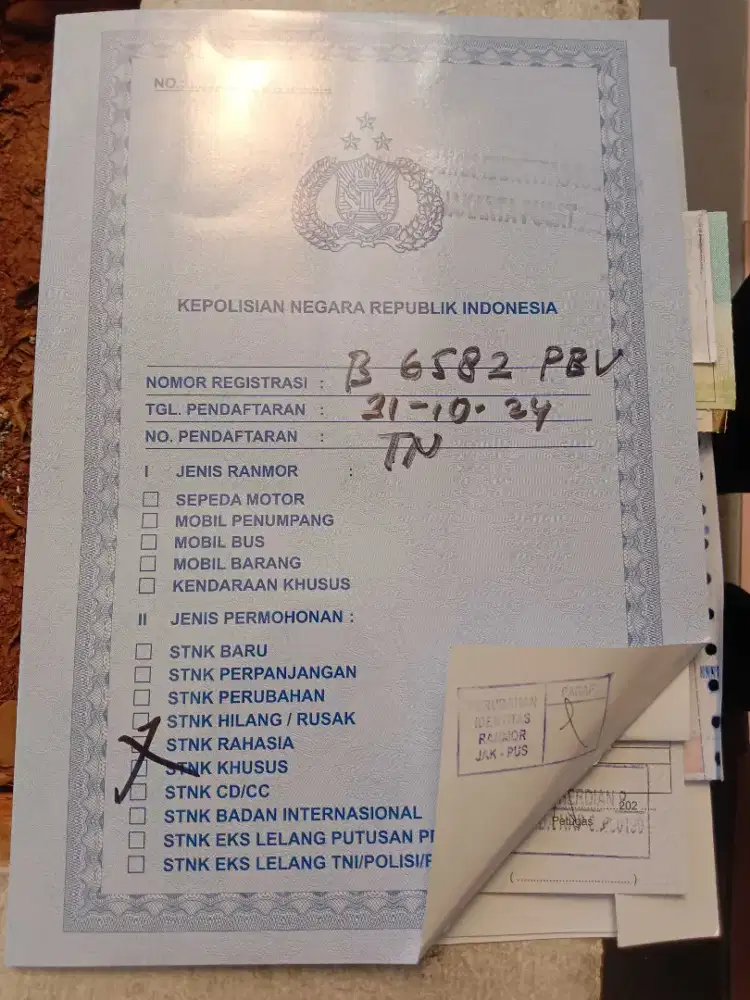 NO.:
KEPOLISIAN NEGARA REPUBLIK INDONESIA
NOMOR REGISTRASI : B 6582 PBV
TGL. PENDAFTARAN : 31-10-24
NO. PENDAFTARAN : TN
I JENIS RANMOR :
SEPEDA MOTOR
MOBIL PENUMPANG
MOBIL BUS
MOBIL BARANG
KENDARAAN KHUSUS
II JENIS PERMOHONAN :
STNK BARU
STNK PERPANJANGAN
STNK PERUBAHAN
STNK HILANG / RUSAK
STNK RAHASIA
STNK KHUSUS
STNK CD/CC
STNK BADAN INTERNASIONAL
STNK EKS LELANG PUTUSAN
STNK EKS LELANG TNI/POLISI/
PARAF
IDENTITAS
RANMOR
JAK - PUS
202
Petugas
(....................)